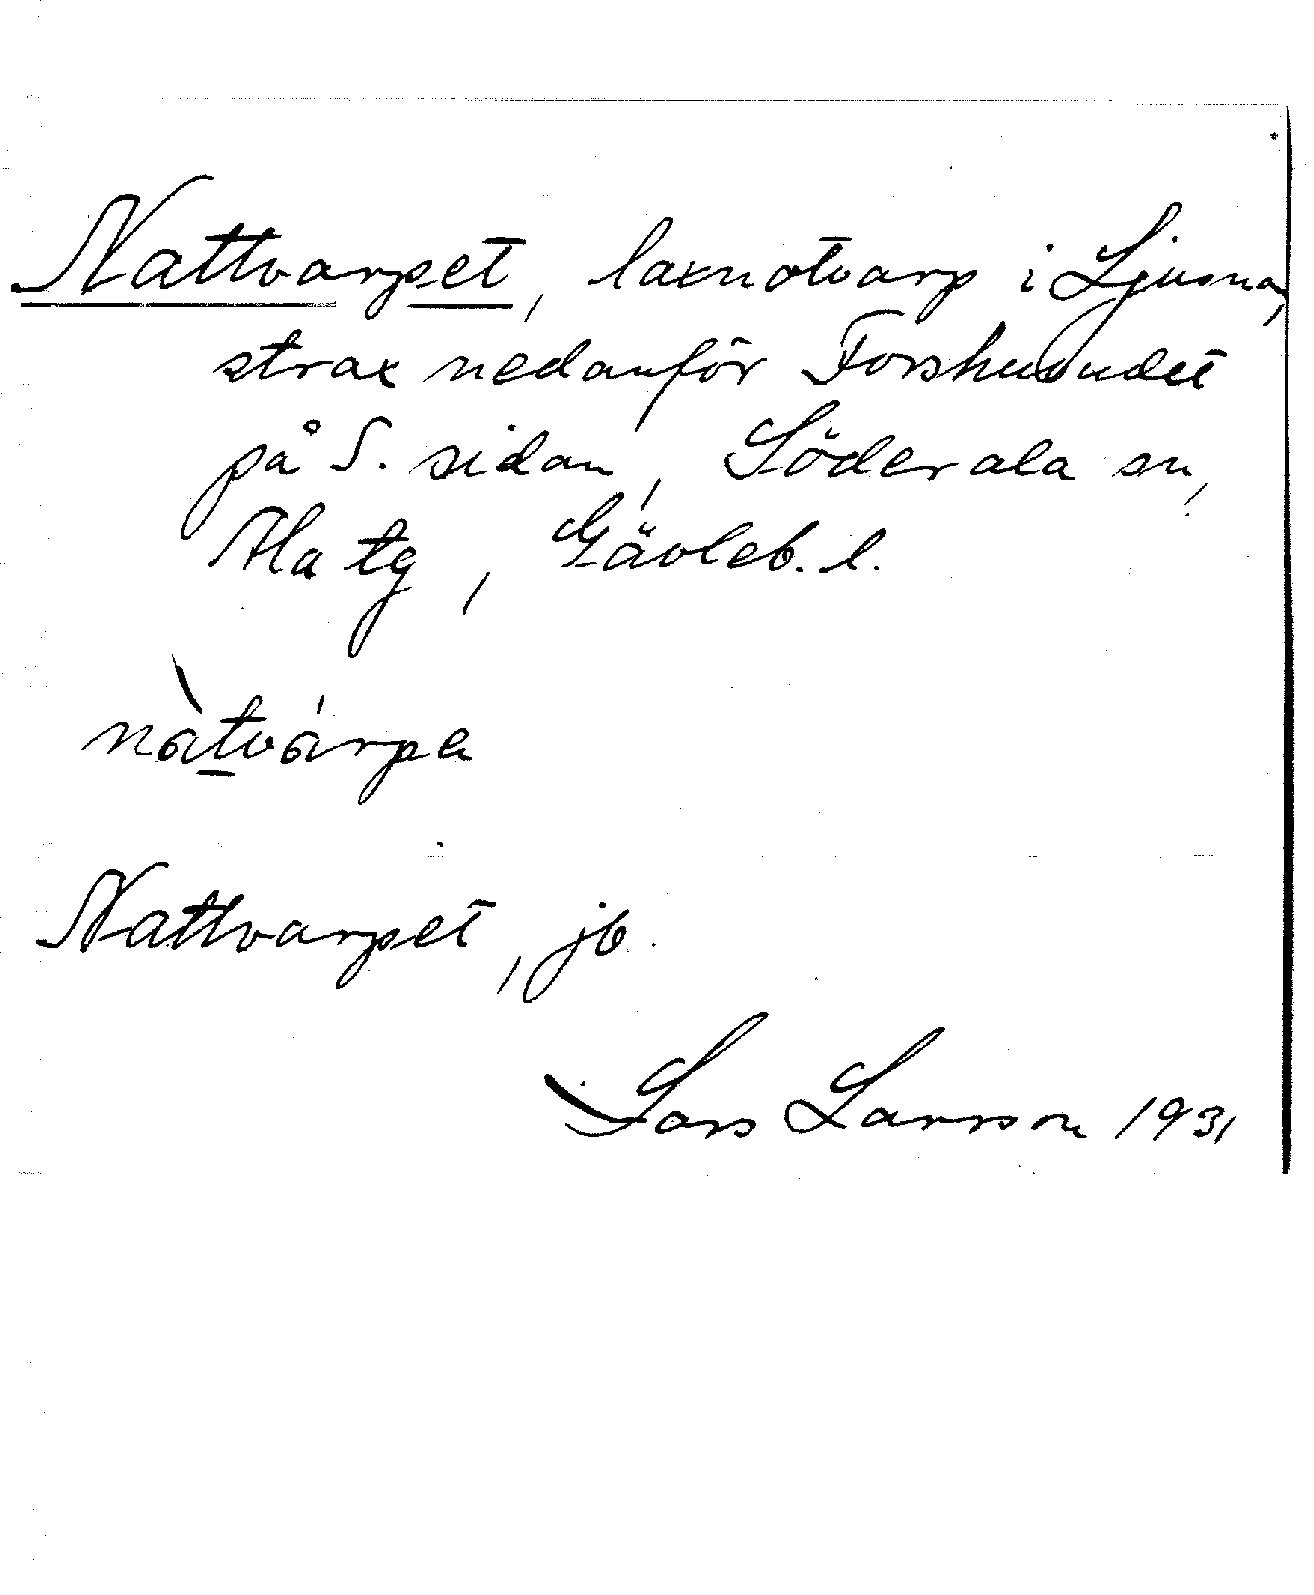 Nattvarpet, laxnotvarp i Ljusnan,
strax nedanför Forshuvudet
på S. sidan, Söderala sn,
Ala tg, Gävleb. l.
nàt̲várpa
Nattvarpet, jb.
Lars Larsson 1931